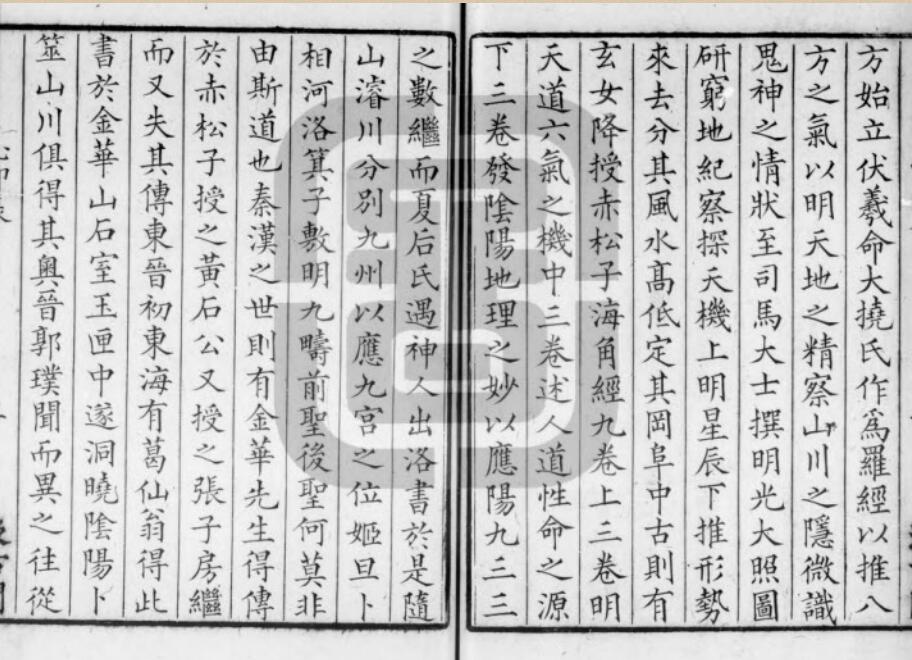 方始立伏羲命大撓氏作爲羅經以推八
方之氣以明天地之精察山川之隱微識
鬼神之情狀至司馬大士撰明光大照圖
研窮地紀察探天機上明星辰下推形勢
來去分其風水高低定其岡阜中古則有
玄女降授赤松子海角經九卷上三卷明
天道六氣之機中三卷述人道性命之源
下三卷發陰陽地理之妙以應陽九三三
之數繼而夏后氏遇神人出洛書於是隨
山濬川分別九州以應九宮之位姬旦卜
相河洛箕子敷明九疇前聖後聖何莫非
由斯道也秦漢之世則有金華先生得傳
於赤松子授之黃石公又授之張子房繼
而又失其傳東晉初東海有葛仙翁得此
書於金華山石室玉匣中遂洞曉陰陽卜
筮山川俱得其奧晉郭璞聞而異之往從